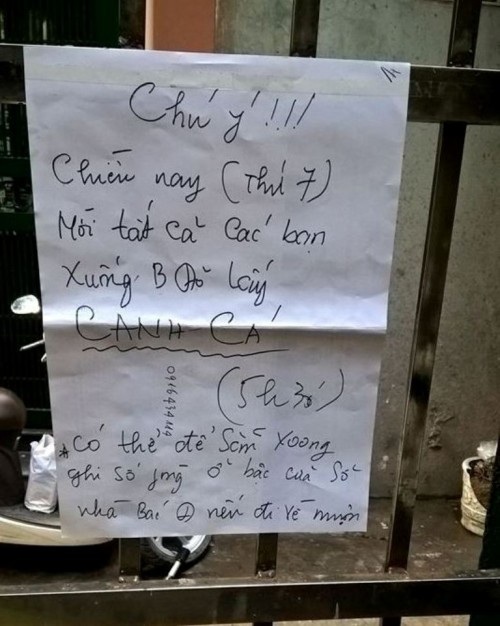 Chú ý!!!
Chiều nay (Thứ 7)
Mời tất cả các bạn
Xuống B lấy
CANH CÁ
(5h30)
* Có thể để Sẵn Xoong
ghi số ở bậc cửa Sổ
nhà Bác nếu đi về muộn